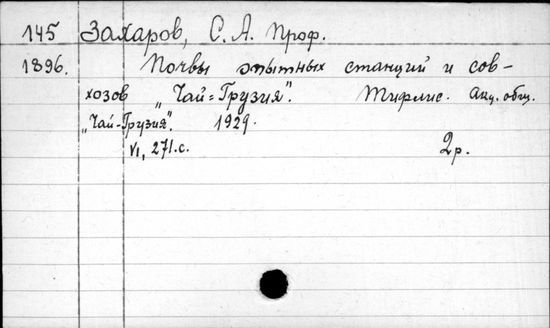 145 Захаров, С. А. Проф.
1896. Почвы опытных станций и сов-
хозов „Чай=Грузия". Тифлис. Акц. общ.
„Чай-Грузия". 1929.
VI, 271.с. 2р.